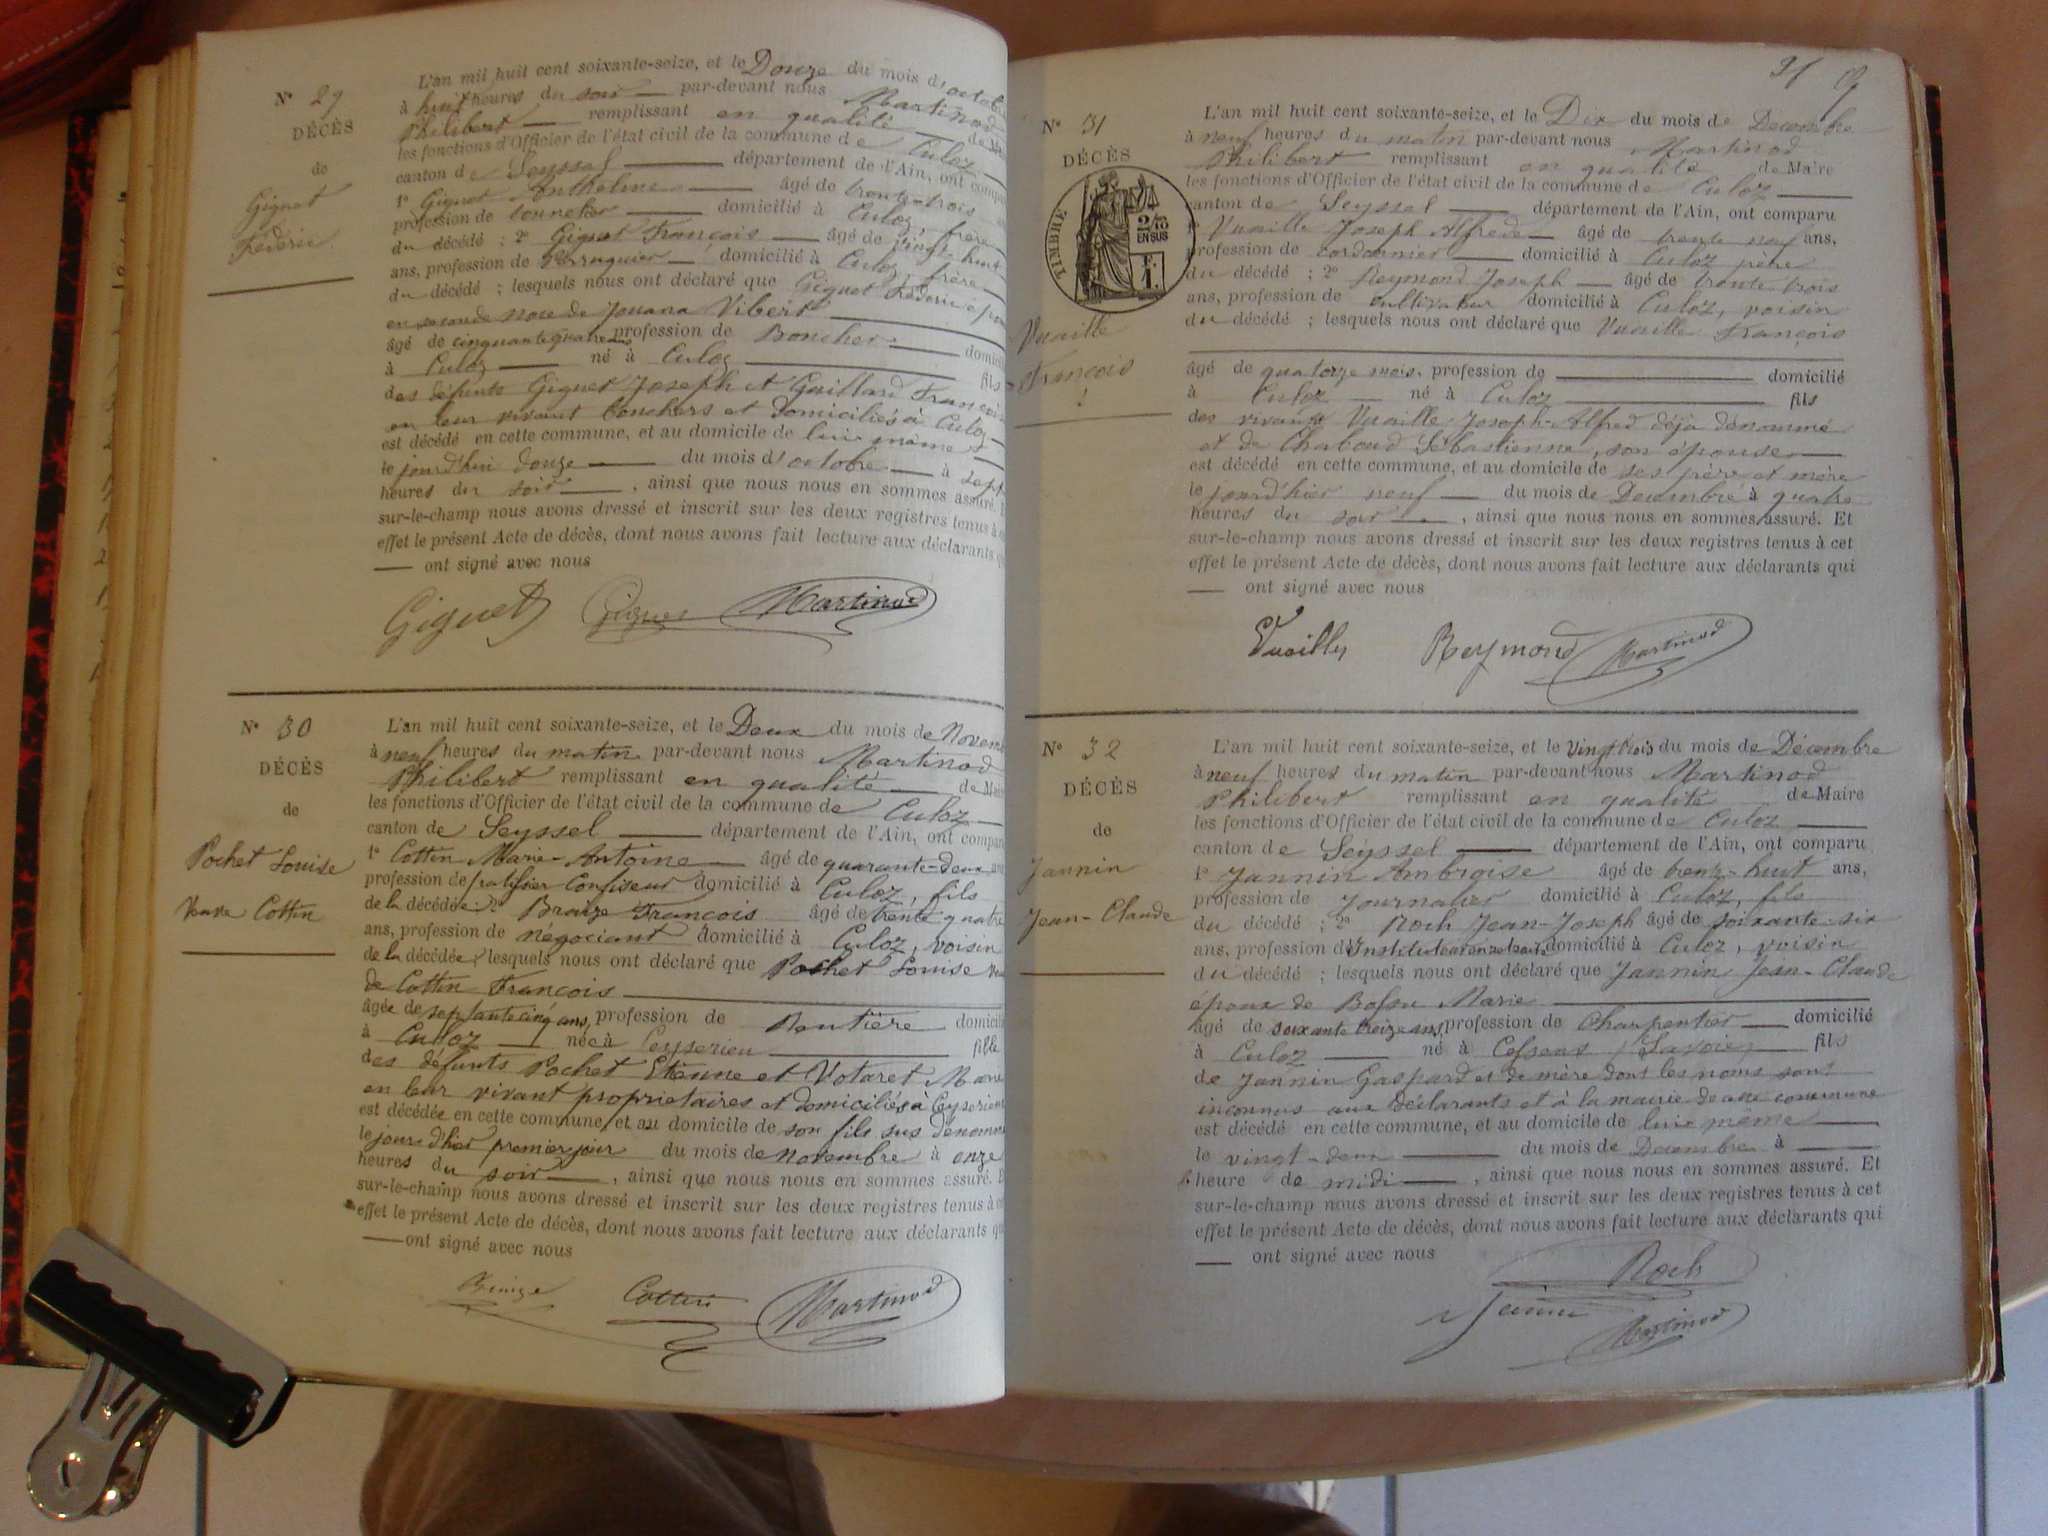 N° 29
DÉCÈS
de
Giguet
Féderic
L'an mil huit cent soixante-seize, et le Douze du mois d'octob
à huit heures du soir par-devant nous Martinod
Philibert remplissant en qualité de
les fonctions d'Officier de l'état civil de la commune de Culoz
canton de Seyssel département de l'Ain, ont compa
1° Giguet Anthelme âgé de trente-trois
profession de tonnelier domicilié à Culoz, frère
du décédé ; 2° Giguet François âgé de vingt-huit
ans, profession de Perruquier domicilié à Culoz, frère
du décédé ; lesquels nous ont déclaré que Giguet Féderic épou
en seconde noce de Jouana Vibert
âgé de cinquante quatre ans profession de Boucher domici
à Culoz né à Culoz fils
des défunts Giguet Joseph et Guillard Franço
en leur vivant bouchers et domiciliés à Culoz
est décédé en cette commune, et au domicile de lui même
le jourd'hui douze du mois d'octobre à sept
heures du soir , ainsi que nous nous en sommes assuré. E
sur-le-champ nous avons dressé et inscrit sur les deux registres tenus à c
effet le présent Acte de décès, dont nous avons fait lecture aux déclarants q
ont signé avec nous
Giguet Giguet Martinod
N° 30
DÉCÈS
de
Pochet Louise
Veuve Cottin
L'an mil huit cent soixante-seize, et le Deux du mois de Novem
à neuf heures du matin par-devant nous Martinod
Philibert remplissant en qualité de Mai
les fonctions d'Officier de l'état civil de la commune de Culoz
canton de Seyssel département de l'Ain, ont compar
1° Cottin Marie-Antoine âgé de quarante-deux ans
profession de patissier confiseur domicilié à Culoz, fils
de la décédée 2° Braize François âgé de trente quatre
ans, profession de négociant domicilié à Culoz, voisin
de la décédée, lesquels nous ont déclaré que Pochet Louise veu
de Cottin François
âgée de septante cinq ans, profession de Rentière domicili
à Culoz née à Ceyserieu fille
des défunts Pochet Etienne et Votaret Marie
en leur vivant propriétaires et domiciliés à Ceyserieu
est décédée en cette commune, et au domicile de son fils sus dénomm
le jour d'hier premier jour du mois de novembre à onze
heures du soir , ainsi que nous nous en sommes assuré. E
sur-le-champ nous avons dressé et inscrit sur les deux registres tenus à ce
effet le présent Acte de décès, dont nous avons fait lecture aux déclarants qu
ont signé avec nous
Braize Cottin Martinod
31
N° 31
DÉCÈS
TIMBRE
2/10
EN SUS
F.
1.
Vuaille
François
L'an mil huit cent soixante-seize, et le Dix du mois de Decembre
à neuf heures du matin par-devant nous Martinod
Philibert remplissant en qualité de Maire
les fonctions d'Officier de l'état civil de la commune de Culoz
canton de Seyssel département de l'Ain, ont comparu
1° Vuaille Joseph Alfred âgé de trente neuf ans,
profession de cordonnier domicilié à Culoz père
du décédé ; 2° Reymond Joseph âgé de trente trois
ans, profession de cultivateur domicilié à Culoz, voisin
du décédé ; lesquels nous ont déclaré que Vuaille François
âgé de quatorze mois, profession de domicilié
à Culoz né à Culoz fils
des vivants Vuaille Joseph-Alfred déja dénommé
et de Chaboud Sébastienne, son épouse
est décédé en cette commune, et au domicile de ses père et mère
le jourd'hier neuf du mois de Decembre à quatre
heures du soir , ainsi que nous nous en sommes assuré. Et
sur-le-champ nous avons dressé et inscrit sur les deux registres tenus à cet
effet le présent Acte de décès, dont nous avons fait lecture aux déclarants qui
ont signé avec nous
Vuailly Reymond Martinod
N° 32
DÉCÈS
de
Jannin
Jean-Claude
L'an mil huit cent soixante-seize, et le vingt trois du mois de Décembre
à neuf heures du matin par-devant nous Martinod
Philibert remplissant en qualité de Maire
les fonctions d'Officier de l'état civil de la commune de Culoz
canton de Seyssel département de l'Ain, ont comparu
1° Jannin Ambroise âgé de trente-huit ans,
profession de Journalier domicilié à Culoz, fils
du décédé ; 2° Roch Jean-Joseph âgé de soixante-six
ans, profession d'Instituteur en retraite domicilié à Culoz, voisin
du décédé ; lesquels nous ont déclaré que Jannin Jean-Claude
époux de Bossu Marie
âgé de soixante treize ans, profession de Charpentier domicilié
à Culoz né à Cessens (Savoie) fils
de Jannin Gaspard et de mère dont les noms sont
inconnus aux déclarants et à la mairie de cette commune
est décédé en cette commune, et au domicile de lui même
le vingt-deux du mois de Decembre à
heure de midi , ainsi que nous nous en sommes assuré. Et
sur-le-champ nous avons dressé et inscrit sur les deux registres tenus à cet
effet le présent Acte de décès, dont nous avons fait lecture aux déclarants qui
ont signé avec nous
Roch
Jannin Martinod